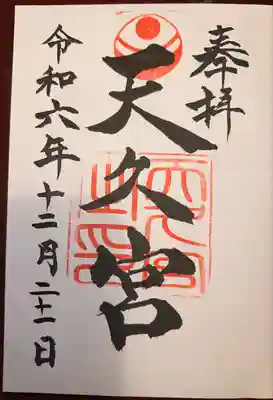 奉拝
天久宮
令和六年十二月二十一日